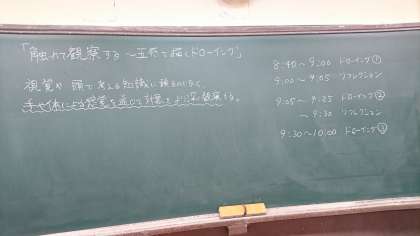 「触れて観察する 〜五感で描くドローイング」
視覚や頭で考える知識に頼るのでなく、
手や体による感覚を通じて対象をより深く観察する。
8:40〜9:00 ドローイング①
9:00〜9:05 リフレクション
9:05〜9:25 ドローイング②
〜9:30 リフレクション
9:30〜10:00 ドローイング③